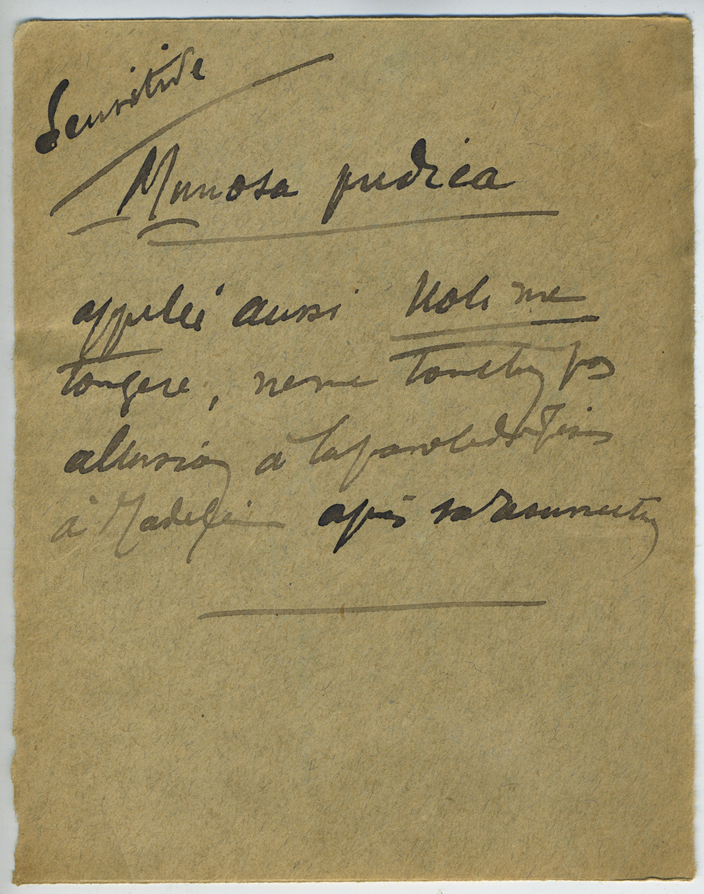 Sensitive
Mimosa pudica
appelée aussi Noli me
tangere, ne me touchez pas
allusion à la parole de Jésus
à Madeleine après sa résurrection